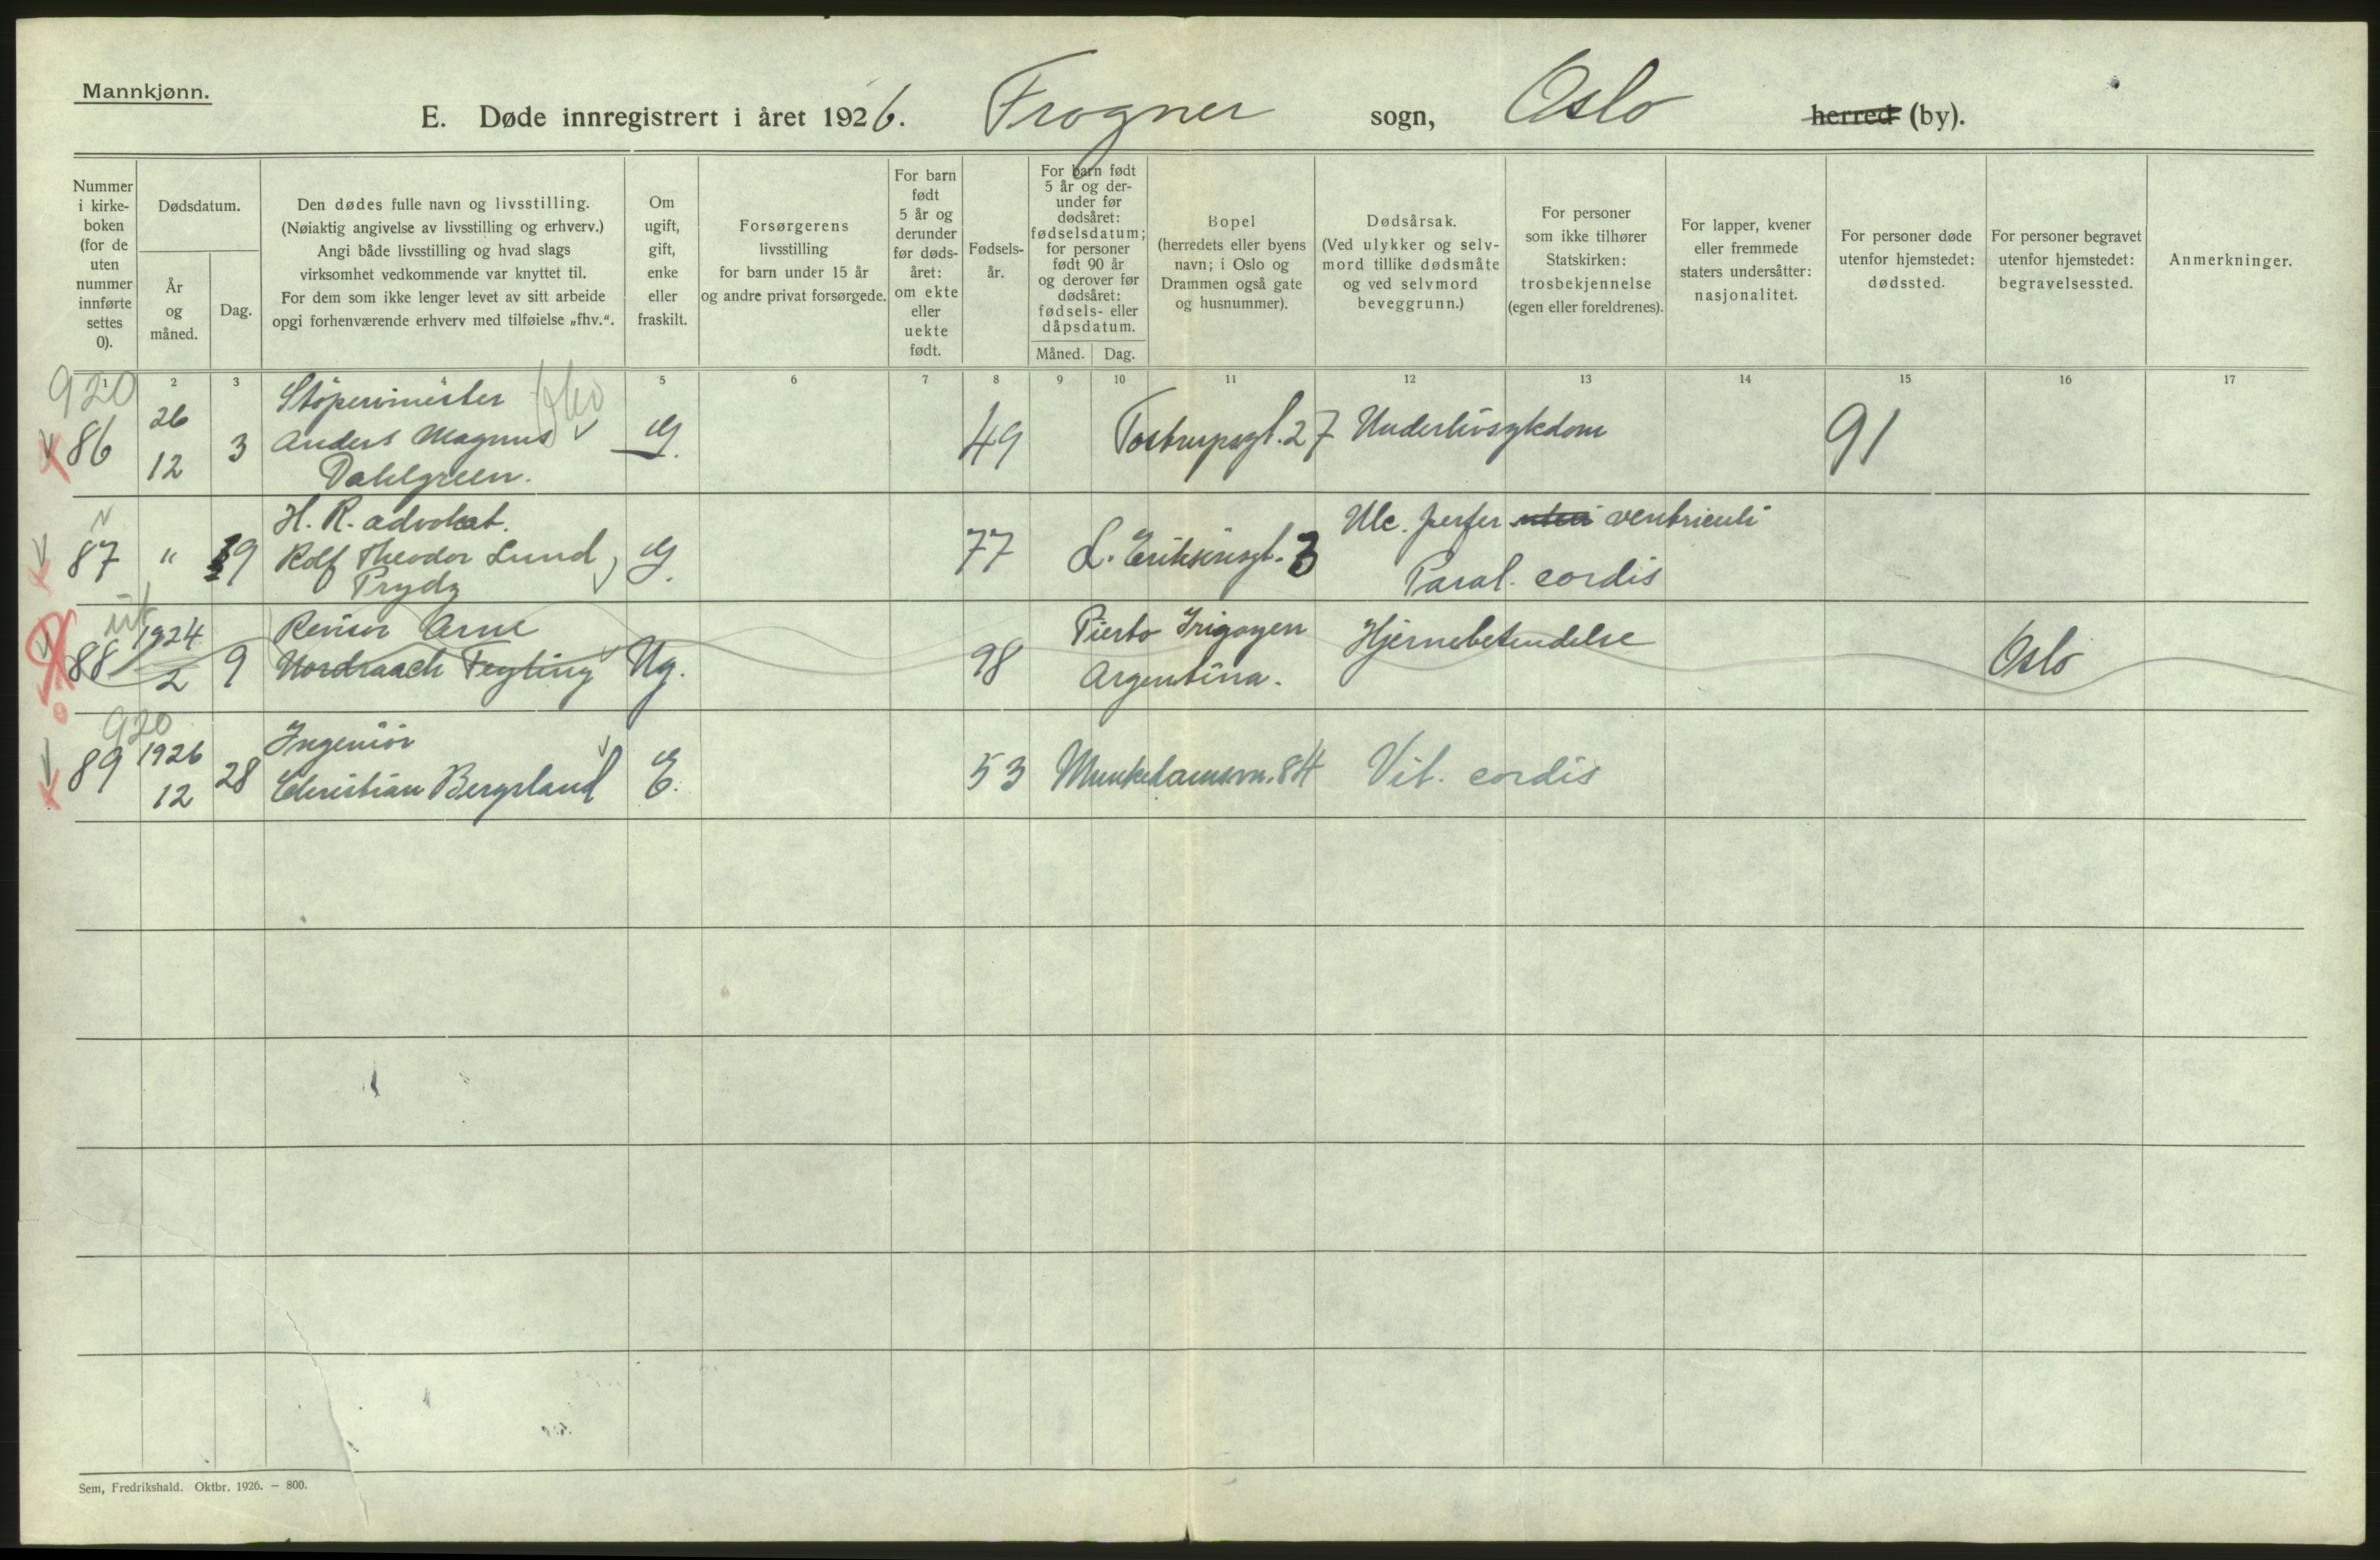 Mannkjønn.
E. Døde innregistrert i året 1926. Frogner sogn, Oslo herred (by).
Nummer i kirke-boken (for de uten nummer innførte settes 0).
Dødsdatum.
År og måned.
Dag.
Den dødes fulle navn og livsstilling.
(Nøiaktig angivelse av livsstilling og erhverv.)
Angi både livsstilling og hvad slags
virksomhet vedkommende var knyttet til.
For dem som ikke lenger levet av sitt arbeide
opgi forhenværende erhverv med tilføielse „fhv.“.
Om ugift, gift, enke eller fraskilt.
Forsørgerens livsstilling for barn under 15 år og andre privat forsørgede.
For barn født 5 år og derunder før døds-året: om ekte eller uekte født.
Fødsels-år.
For barn født 5 år og der-under før dødsåret: fødselsdatum; for personer født 90 år og derover før dødsåret: fødsels- eller dåpsdatum.
Måned. Dag.
Bopel (herredets eller byens navn; i Oslo og Drammen også gate og husnummer).
Dødsårsak. (Ved ulykker og selv-mord tillike dødsmåte og ved selvmord beveggrunn.)
For personer som ikke tilhører Statskirken: trosbekjennelse (egen eller foreldrenes).
For lapper, kvener eller fremmede staters undersåtter: nasjonalitet.
For personer døde utenfor hjemstedet: dødssted.
For personer begravet utenfor hjemstedet: begravelsessted.
Anmerkninger.
1 2 3 4 5 6 7 8 9 10 11 12 13 14 15 16 17
920
Støperimester
86 26 12 3 Anders Magnus G. 49 Tostrupsgt. 27 Underlivsykdom 91
Dahlgreen.
H. R. advokat.
87 " 19 Rolf Theodor Lund G. 77 L. Eriksønsgt. 3 Ulc. perfor ventriculi
Prydz Paral. cordis
1924 Revisor Arne Pierto Irigoyen Hjernebetendelse
88 2 9 Nordraach Fegling Ug. 98 Argentina. Oslo
920
1926 Ingeniør
89 12 28 Christian Bergsland E. 53 Munkedamsvn. 84 Vit. cordis
Sem, Fredrikshald. Oktbr. 1926. – 800.